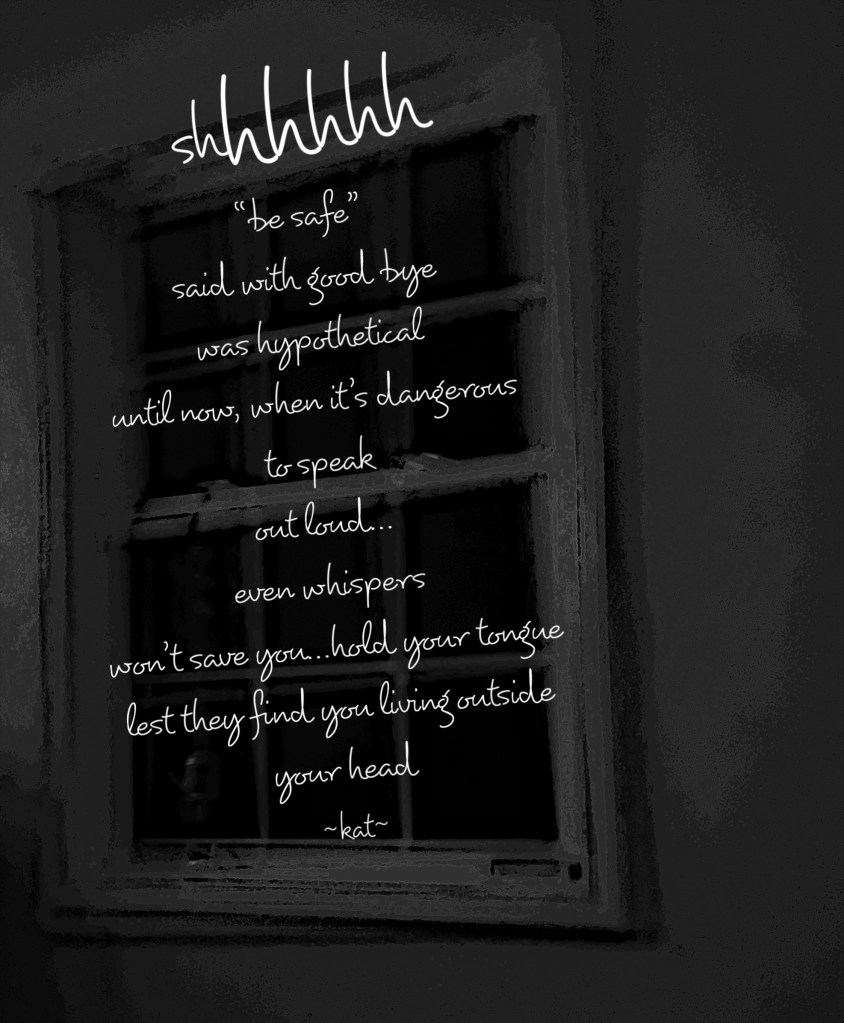 shhhhhh
“be safe”
said with good bye
was hypothetical
until now, when it’s dangerous
to speak
out loud...
even whispers
won’t save you...hold your tongue
lest they find you living outside
your head
~kat~